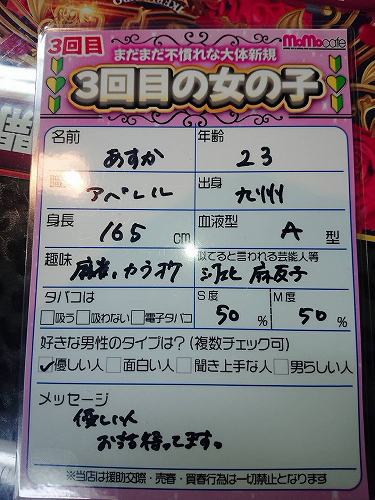 3回目
まだまだ不慣れな大体新規
MoMo cafe
3回目の女の子
名前 あすか
年齢 23
職 アパレル
出身 九州
身長 165 cm
血液型 A 型
趣味 麻雀、カラオケ
似てると言われる芸能人等 麻友子
タバコは
吸う 吸わない 電子タバコ
S度 50 %
M度 50 %
好きな男性のタイプは?(複数チェック可)
優しい人 面白い人 聞き上手な人 男らしい人
メッセージ
優しい人
お待ち待ってます。
※当店は援助交際・売春・買春行為は一切禁止となります